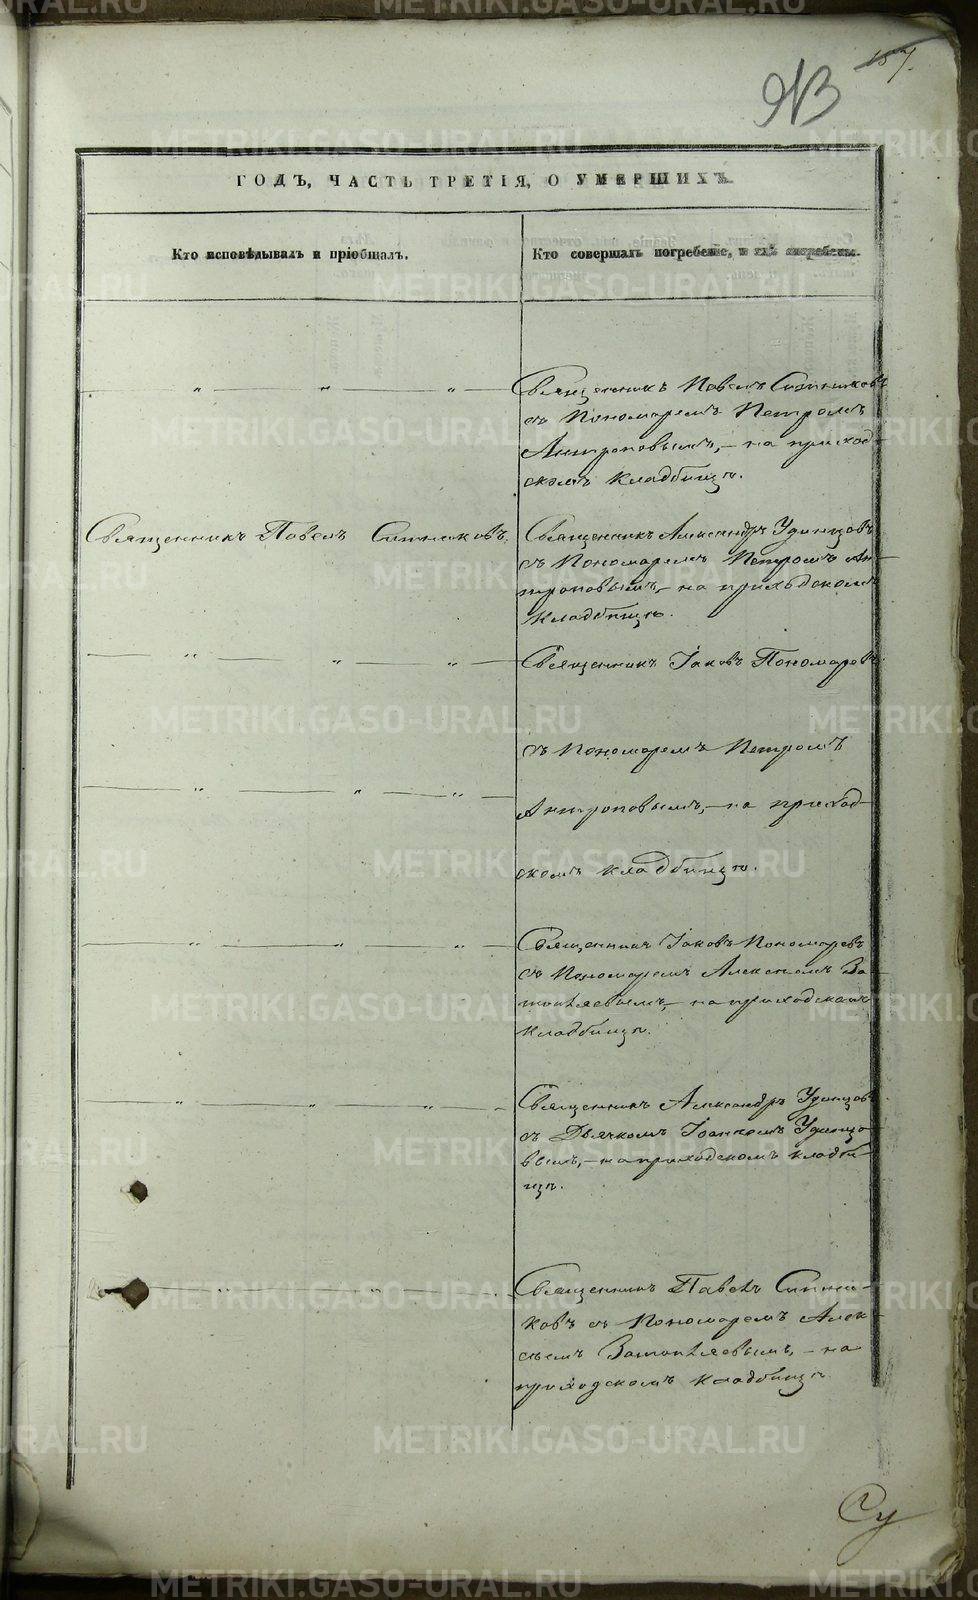 157.
913
ГОДЪ, ЧАСТЬ ТРЕТІЯ, О УМЕРШИХЪ.
Кто исповѣдывалъ и пріобщалъ.
Кто совершалъ погребеніе, и гдѣ погребены.
" " "
Священникъ Павелъ Ситниковъ
съ Пономаремъ Петромъ
Антроповымъ, – на приход-
скомъ кладбищѣ.
Священникъ Павелъ Ситниковъ.
Священникъ Александръ Удинцовъ
съ Пономаремъ Петромъ Ан-
троповымъ, на приходскомъ
кладбищѣ.
" " "
Священникъ Іаковъ Пономаревъ
съ Пономаремъ Петромъ
" " "
Антроповымъ, – на приход-
скомъ кладбищѣ.
" " "
Священникъ Іаковъ Пономаревъ
съ Пономаремъ Алексѣемъ За-
топляевымъ, – на приходскомъ
кладбищѣ.
" " "
Священникъ Александръ Удинцовъ
съ Дьячкомъ Іоанномъ Удинцо-
вымъ, – на приходскомъ кладби-
щѣ.
" " "
Священникъ Павелъ Ситни-
ковъ съ Пономаремъ Алек-
сѣемъ Затопляевымъ, – на
приходскомъ кладбищѣ
Су
METRIKI.GASO-URAL.RU